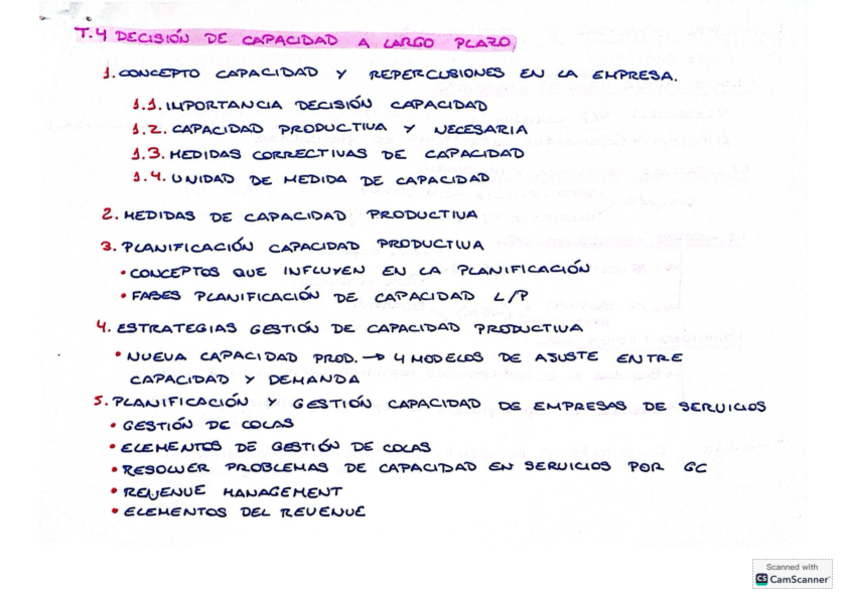 T.4 DECISIÓN DE CAPACIDAD A LARGO PLAZO
1. CONCEPTO CAPACIDAD Y REPERCUSIONES EN LA EMPRESA.
1.1. IMPORTANCIA DECISIÓN CAPACIDAD
1.2. CAPACIDAD PRODUCTIVA Y NECESARIA
1.3. MEDIDAS CORRECTIVAS DE CAPACIDAD
1.4. UNIDAD DE MEDIDA DE CAPACIDAD
2. MEDIDAS DE CAPACIDAD PRODUCTIVA
3. PLANIFICACIÓN CAPACIDAD PRODUCTIVA
• CONCEPTOS QUE INFLUYEN EN LA PLANIFICACIÓN
• FASES PLANIFICACIÓN DE CAPACIDAD L/P
4. ESTRATEGIAS GESTIÓN DE CAPACIDAD PRODUCTIVA
• NUEVA CAPACIDAD PROD. → 4 MODELOS DE AJUSTE ENTRE
CAPACIDAD Y DEMANDA
5. PLANIFICACIÓN Y GESTIÓN CAPACIDAD DE EMPRESAS DE SERVICIOS
• GESTIÓN DE COLAS
• ELEMENTOS DE GESTIÓN DE COLAS
• RESOLVER PROBLEMAS DE CAPACIDAD EN SERVICIOS POR GC
• REVENUE MANAGEMENT
• ELEMENTOS DEL REVENUE
Scanned with
CS CamScanner